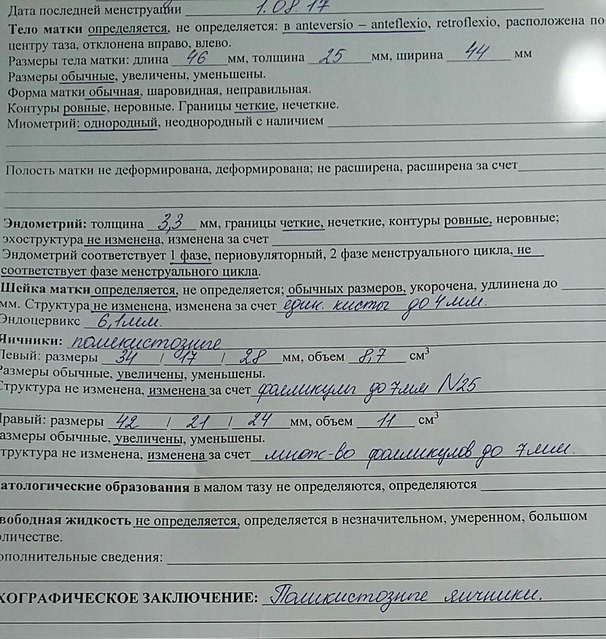 Дата последней менструации 1.08.17
Тело матки определяется, не определяется: в anteversio – anteflexio, retroflexio, расположена по
центру таза, отклонена вправо, влево.
Размеры тела матки: длина 46 мм, толщина 25 мм, ширина 44 мм
Размеры обычные, увеличены, уменьшены.
Форма матки обычная, шаровидная, неправильная.
Контуры ровные, неровные. Границы четкие, нечеткие.
Миометрий: однородный, неоднородный с наличием
Полость матки не деформирована, деформирована; не расширена, расширена за счет
Эндометрий: толщина 3,3 мм, границы четкие, нечеткие, контуры ровные, неровные;
эхоструктура не изменена, изменена за счет
Эндометрий соответствует 1 фазе, периовуляторный, 2 фазе менструального цикла, не
соответствует фазе менструального цикла.
Шейка матки определяется, не определяется; обычных размеров, укорочена, удлинена до
мм. Структура не изменена, изменена за счет един. кисты до 4 мм.
Эндоцервикс 6,1 мм.
Яичники: поликистозные
Левый: размеры 34 / 17 / 28 мм, объем 8,7 см³
Размеры обычные, увеличены, уменьшены.
Структура не изменена, изменена за счет фолликулы до 7 мм N25
Правый: размеры 42 / 21 / 24 мм, объем 11 см³
азмеры обычные, увеличены, уменьшены.
труктура не изменена, изменена за счет множ-во фолликулов до 7 мм.
атологические образования в малом тазу не определяются, определяются
вободная жидкость не определяется, определяется в незначительном, умеренном, большом
оличестве.
ополнительные сведения:
ХОГРАФИЧЕСКОЕ ЗАКЛЮЧЕНИЕ: Поликистозные яичники.